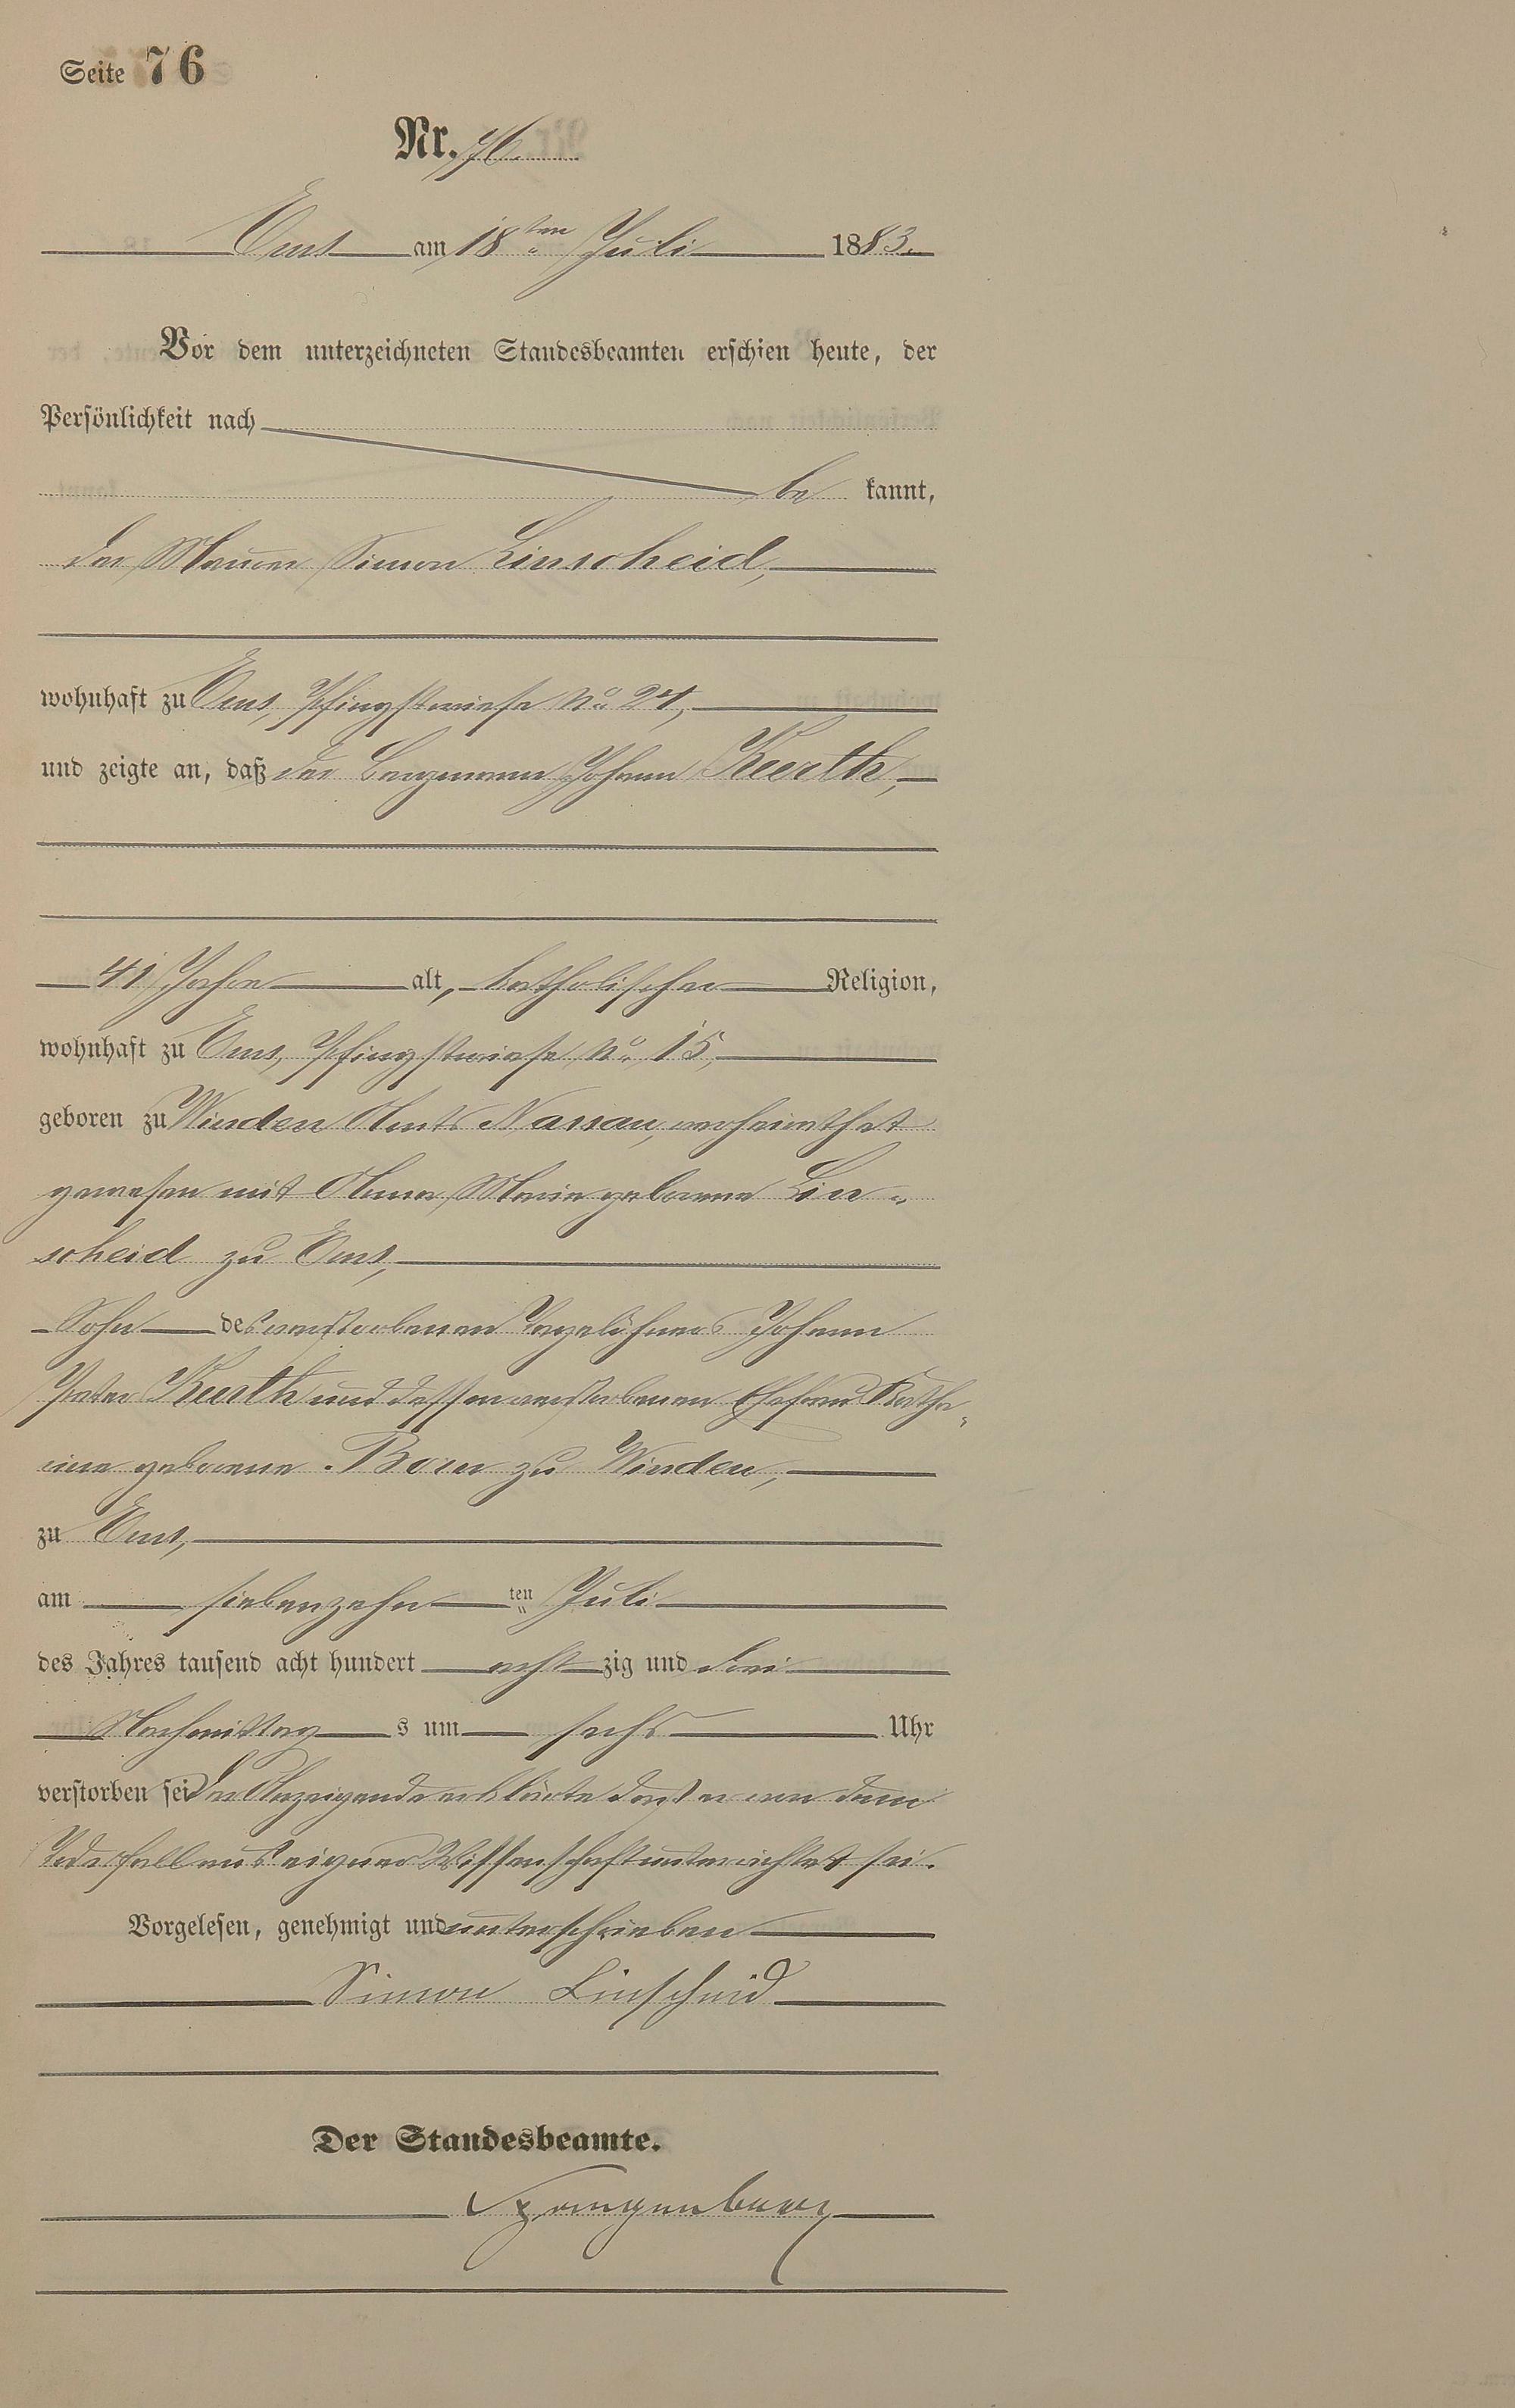 Seite 76
Nr. 76.
Ems am 18ten Juli 1883.
Vor dem unterzeichneten Standesbeamten erschien heute, der
Persönlichkeit nach
be kannt,
der Maurer Simon Linscheid,
wohnhaft zu Ems, Pfingstwiese No. 24,
und zeigte an, daß der Bergmann Johann Kurth,
41 Jahre alt, katholischer Religion,
wohnhaft zu Ems, Pfingstwiese No. 15,
geboren zu Winden Amts Nassau, verheirathet
gewesen mit Anna Maria geborene Lin-
scheid zu Ems,
Sohn des verstorbenen Tagelöhners Johann
Peter Kurth und dessen verstorbenen Ehefrau Katha-
rina geborene Born zu Winden,
zu Ems,
am siebenzehn ten Juli
des Jahres tausend acht hundert acht zig und drei
Nachmittag s um sechs Uhr
verstorben sei Der Anzeigende erklärte daß er von dem
Todesfall aus eigner Wissenschaft unterrichtet sei.
Vorgelesen, genehmigt und unterschrieben
Simon Linscheid
Der Standesbeamte.
Spangenberg